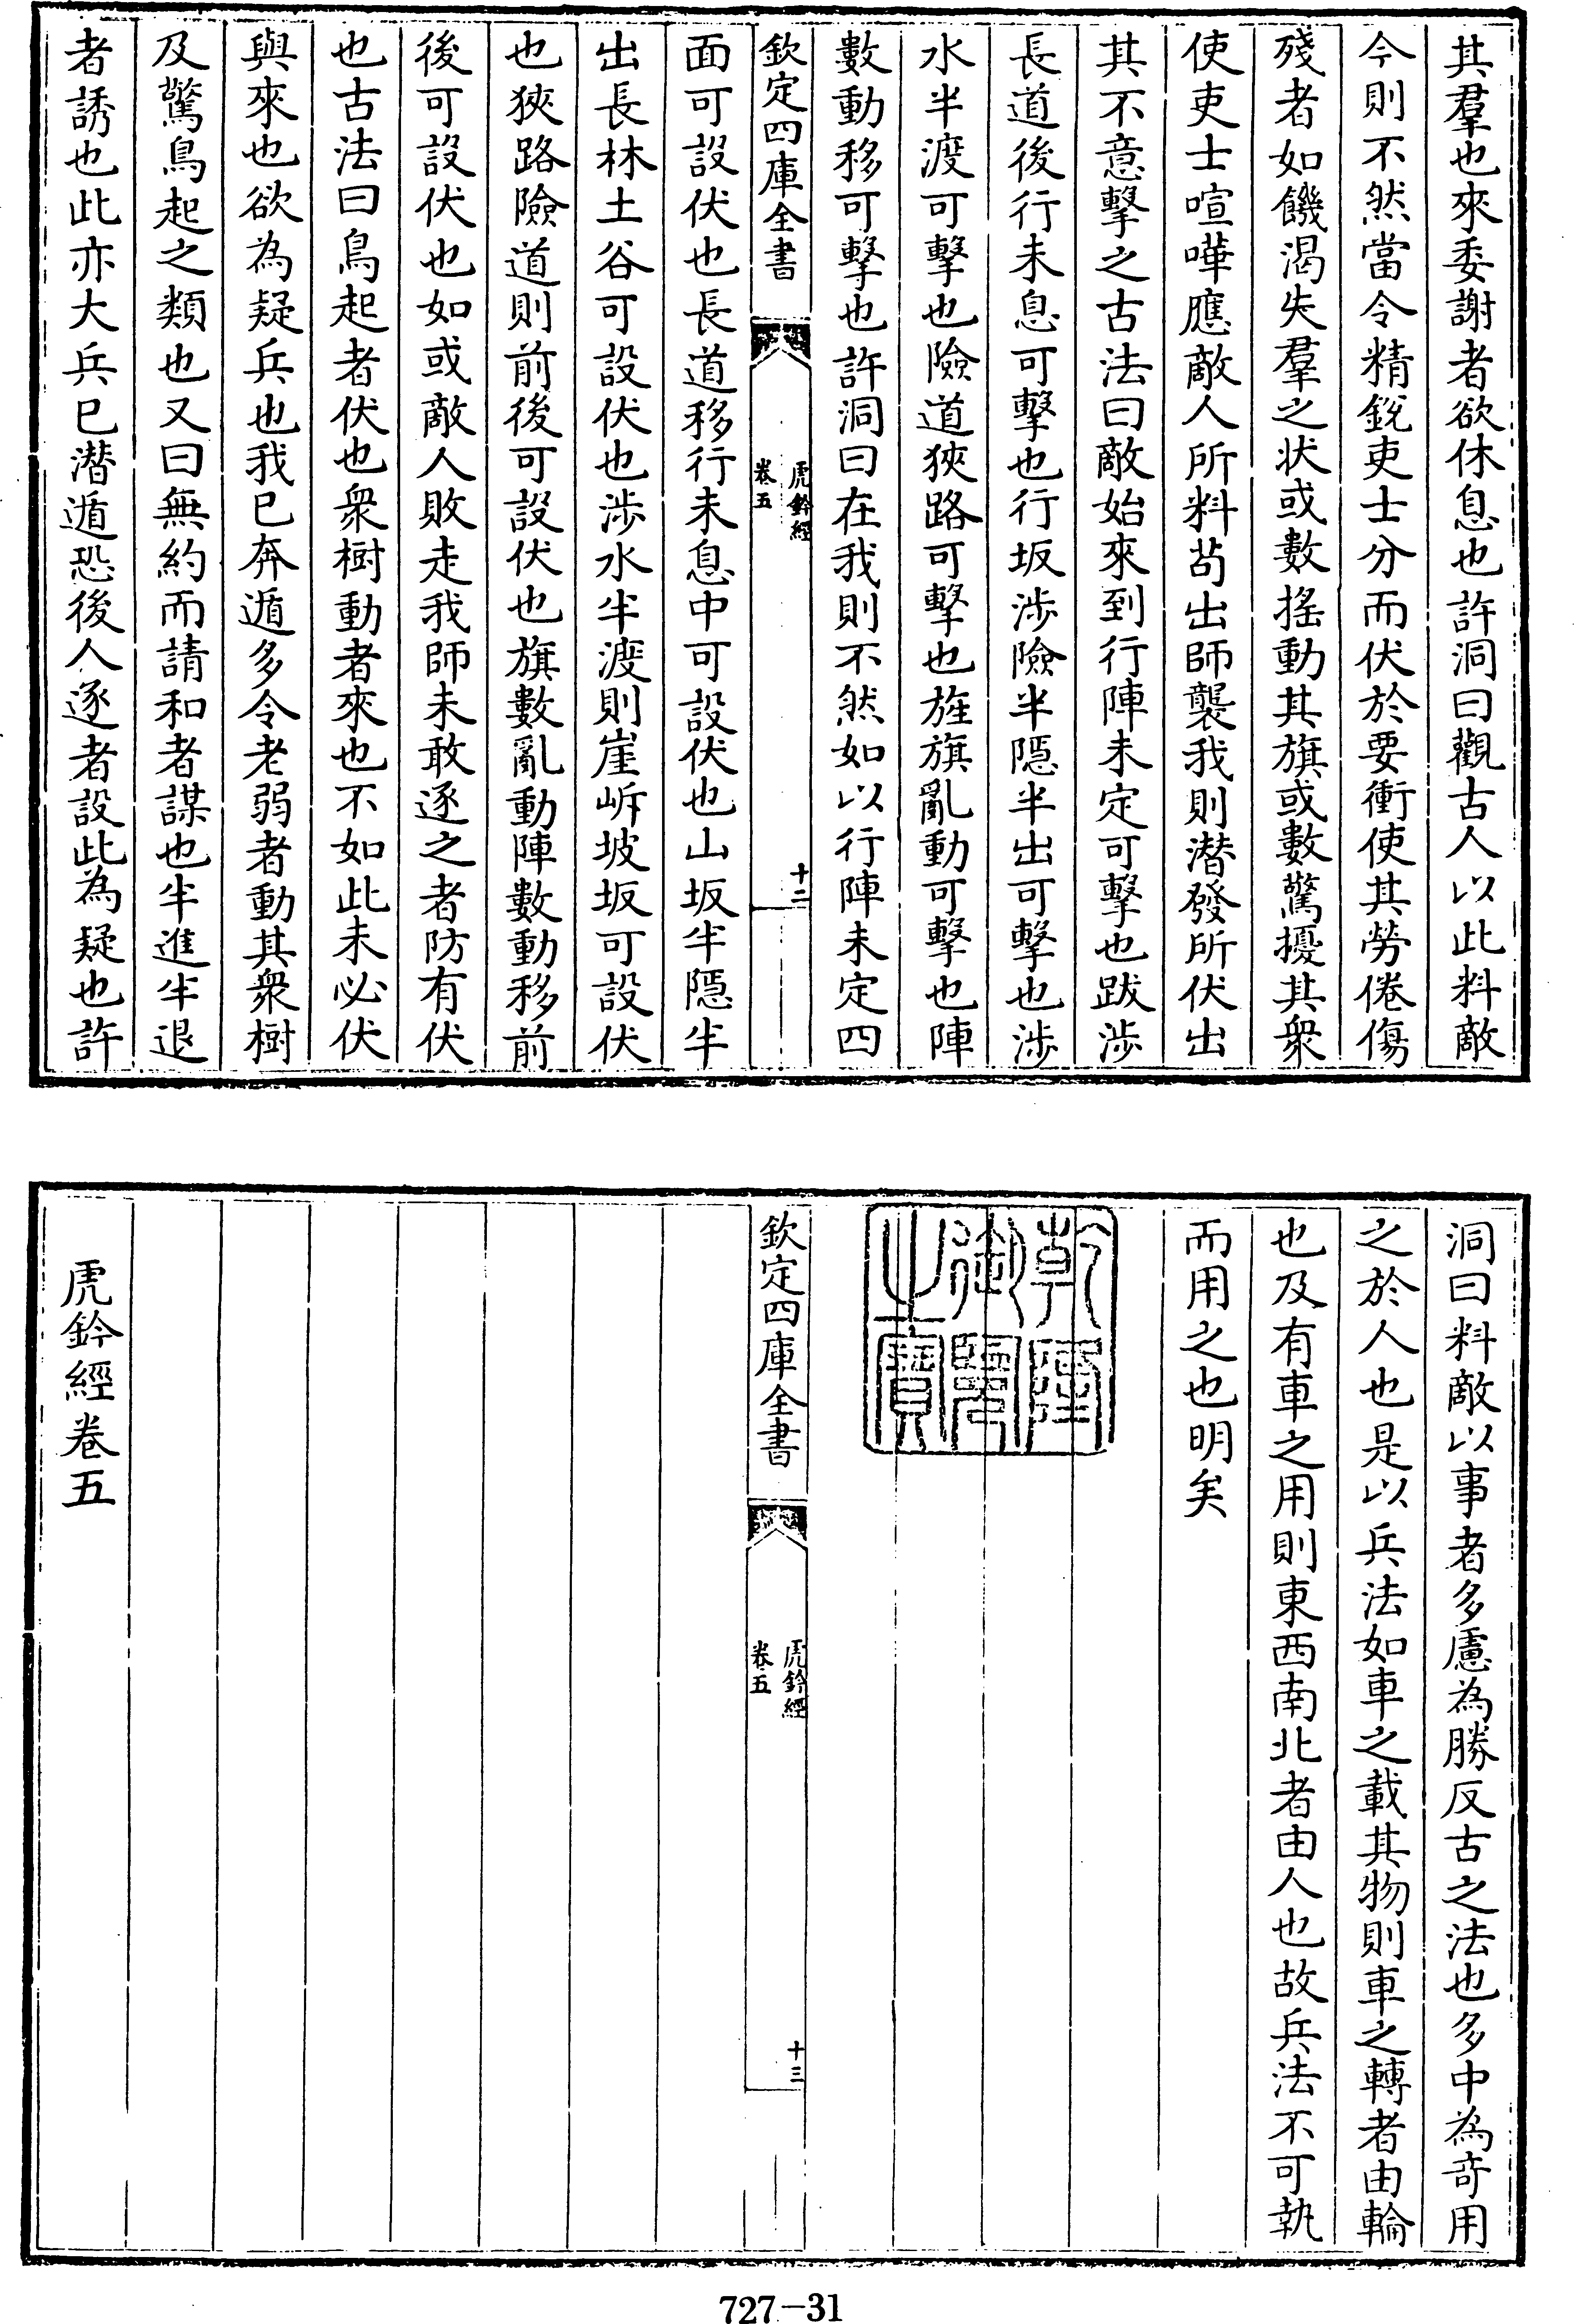 其羣也來委謝者欲休息也許洞曰觀古人以此料敵
今則不然當令精銳吏士分而伏於要衝使其勞倦傷
殘者如饑渴失羣之状或數搖動其旗或數驚擾其衆
使吏士喧嘩應敵人所料茍出師襲我則潛發所伏出
其不意擊之古法曰敵始來到行陣未定可擊也跋涉
長道後行未息可擊也行坂涉險半隱半出可擊也涉
水半渡可擊也險道狹路可擊也旌旗亂動可擊也陣
數動移可擊也許洞曰在我則不然如以行陣未定四
欽定四庫全書
虎鈐經
卷五
十二
面可設伏也長道移行未息中可設伏也山坂半隱半
出長林土谷可設伏也涉水半渡則崖岍坡坂可設伏
也狹路險道則前後可設伏也旗數亂動陣數動移前
後可設伏也如或敵人敗走我師未敢逐之者防有伏
也古法曰鳥起者伏也衆樹動者來也不如此未必伏
與來也欲為疑兵也我已奔遁多令老弱者動其衆樹
及驚鳥起之類也又曰無約而請和者謀也半進半退
者誘也此亦大兵已潛遁恐後人逐者設此為疑也許
洞曰料敵以事者多慮為勝反古之法也多中為竒用
之於人也是以兵法如車之載其物則車之轉者由輪
也及有車之用則東西南北者由人也故兵法不可執
而用之也明矣
乾隆
御覽
之寶
欽定四庫全書
虎鈐經
卷五
十三
虎鈐經卷五
727-31